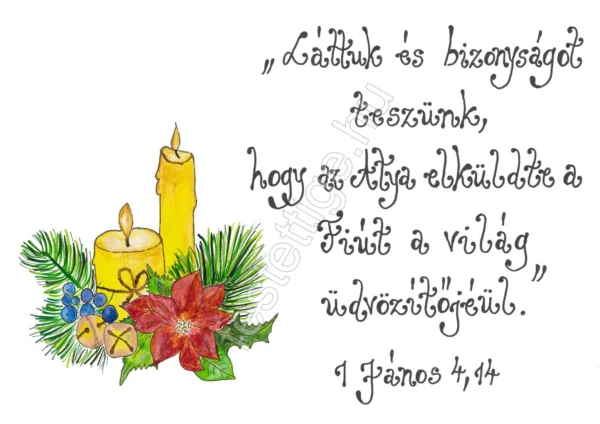 „Láttuk és bizonyságot
teszünk,
hogy az Atya elküldte a
Fiút a világ
üdvözítőjéül.”
1 János 4,14
festettige.hu